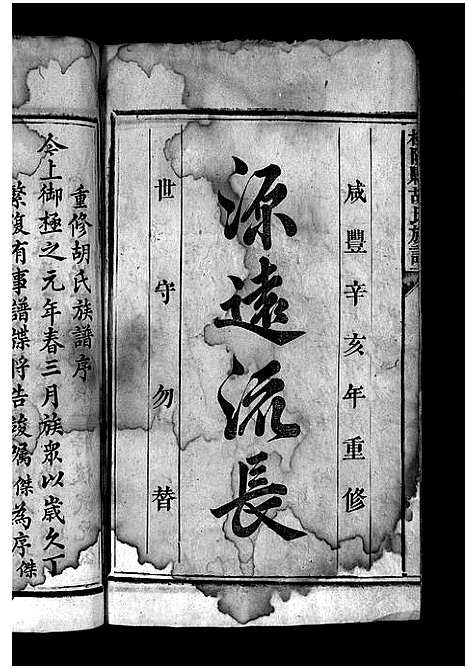 胡氏族譜
咸豐辛亥年重修
源遠流長
世守勿替
重修胡氏族譜序
今上御極之元年春三月族眾以歲久丁
繁復有事譜牒將告竣屬傑為序傑